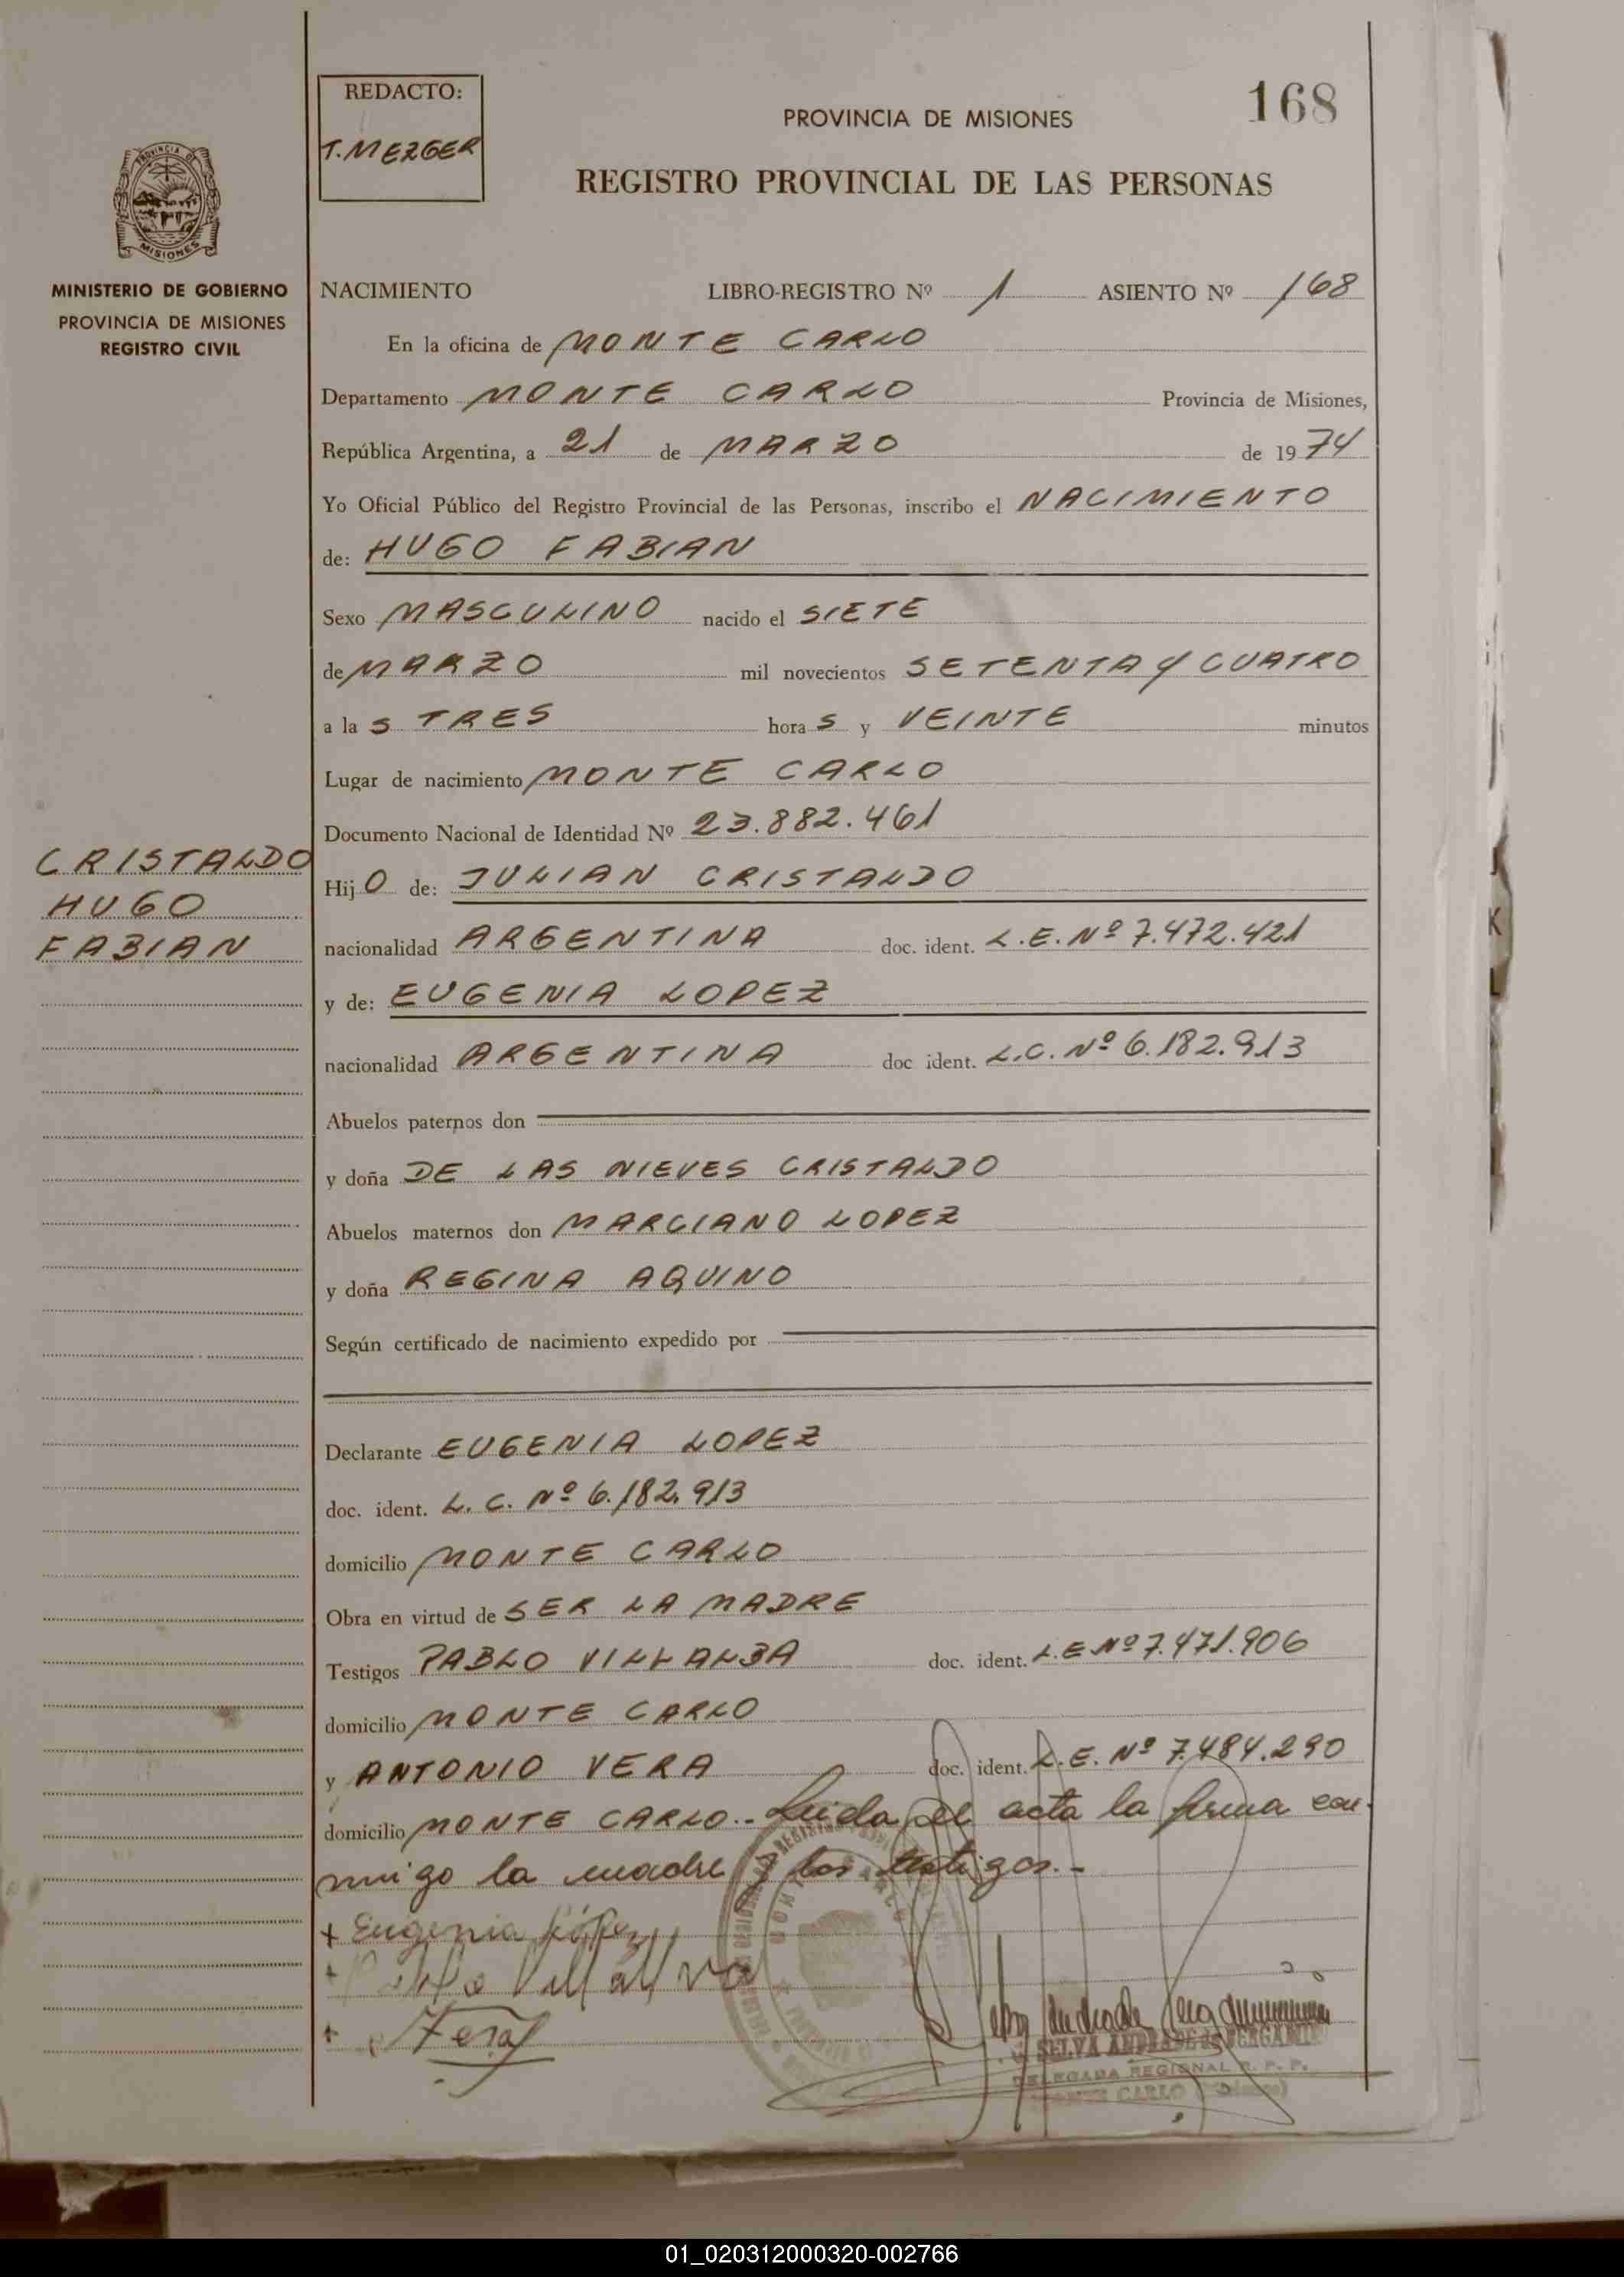 REDACTO:
T. MEZGER
168
PROVINCIA DE MISIONES
REGISTRO PROVINCIAL DE LAS PERSONAS
PROVINCIA DE
MISIONES
MINISTERIO DE GOBIERNO
PROVINCIA DE MISIONES
REGISTRO CIVIL
NACIMIENTO LIBRO-REGISTRO Nº 1 ASIENTO Nº 168
En la oficina de MONTE CARLO
Departamento MONTE CARLO Provincia de Misiones,
República Argentina, a 21 de MARZO de 1974
Yo Oficial Público del Registro Provincial de las Personas, inscribo el NACIMIENTO
de: HUGO FABIAN
Sexo MASCULINO nacido el SIETE
de MARZO mil novecientos SETENTA Y CUATRO
a la s TRES hora s y VEINTE minutos
Lugar de nacimiento MONTE CARLO
Documento Nacional de Identidad Nº 23.882.461
CRISTALDO
HUGO
FABIAN
Hij O de: JULIAN CRISTALDO
nacionalidad ARGENTINA doc. ident. L.E. Nº 7.472.421
y de: EUGENIA LOPEZ
nacionalidad ARGENTINA doc ident. L.C. Nº 6.182.913
Abuelos paternos don
y doña DE LAS NIEVES CRISTALDO
Abuelos maternos don MARCIANO LOPEZ
y doña REGINA AQUINO
Según certificado de nacimiento expedido por
Declarante EUGENIA LOPEZ
doc. ident. L. C. Nº 6.182.913
domicilio MONTE CARLO
Obra en virtud de SER LA MADRE
Testigos PABLO VILLALBA doc. ident. L.E Nº 7.471.906
domicilio MONTE CARLO
y ANTONIO VERA doc. ident. L.E. Nº 7.484.290
domicilio MONTE CARLO.- Leida el acta la firma con
migo la madre y los testigos.-
+ Eugenia López
+ Pablo Villalva
+ Vera
SELVA ANDRADE de BERGAMIN
DELEGADA REGIONAL R. P. P.
MONTE CARLO (Misiones)
01_020312000320-002766